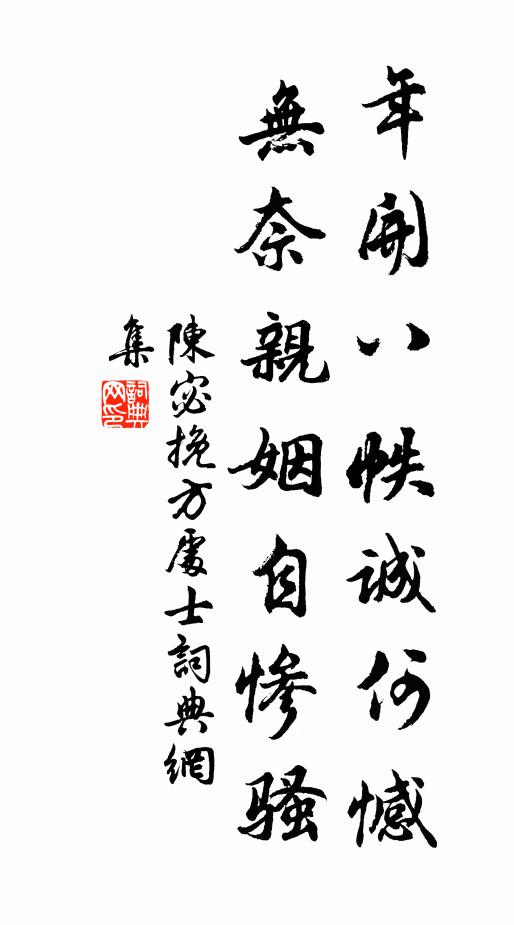 年開八帙誠何憾
無奈親姻自慘骚
陳宓挽方處士詞典網
集
詞典
网印